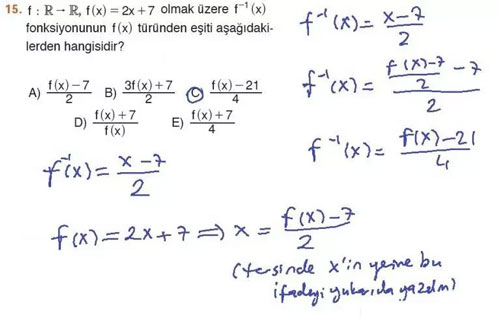 15. f : ℝ→ℝ, f(x) = 2x+7 olmak üzere f⁻¹(x)
fonksiyonunun f(x) türünden eşiti aşağıdaki-
lerden hangisidir?
A) (f(x)−7)/2 B) (3f(x)+7)/2 C) (f(x)−21)/4
D) (f(x)+7)/f(x) E) (f(x)+7)/4
f⁻¹(x) = (x−7)/2
f⁻¹(x) = ((f(x)−7)/2 − 7)/2
f⁻¹(x) = (f(x)−21)/4
f⁻¹(x) = (x−7)/2
f(x) = 2x+7 ⇒ x = (f(x)−7)/2
(tersinde x'in yerine bu
ifadeyi yukarıda yazdım)